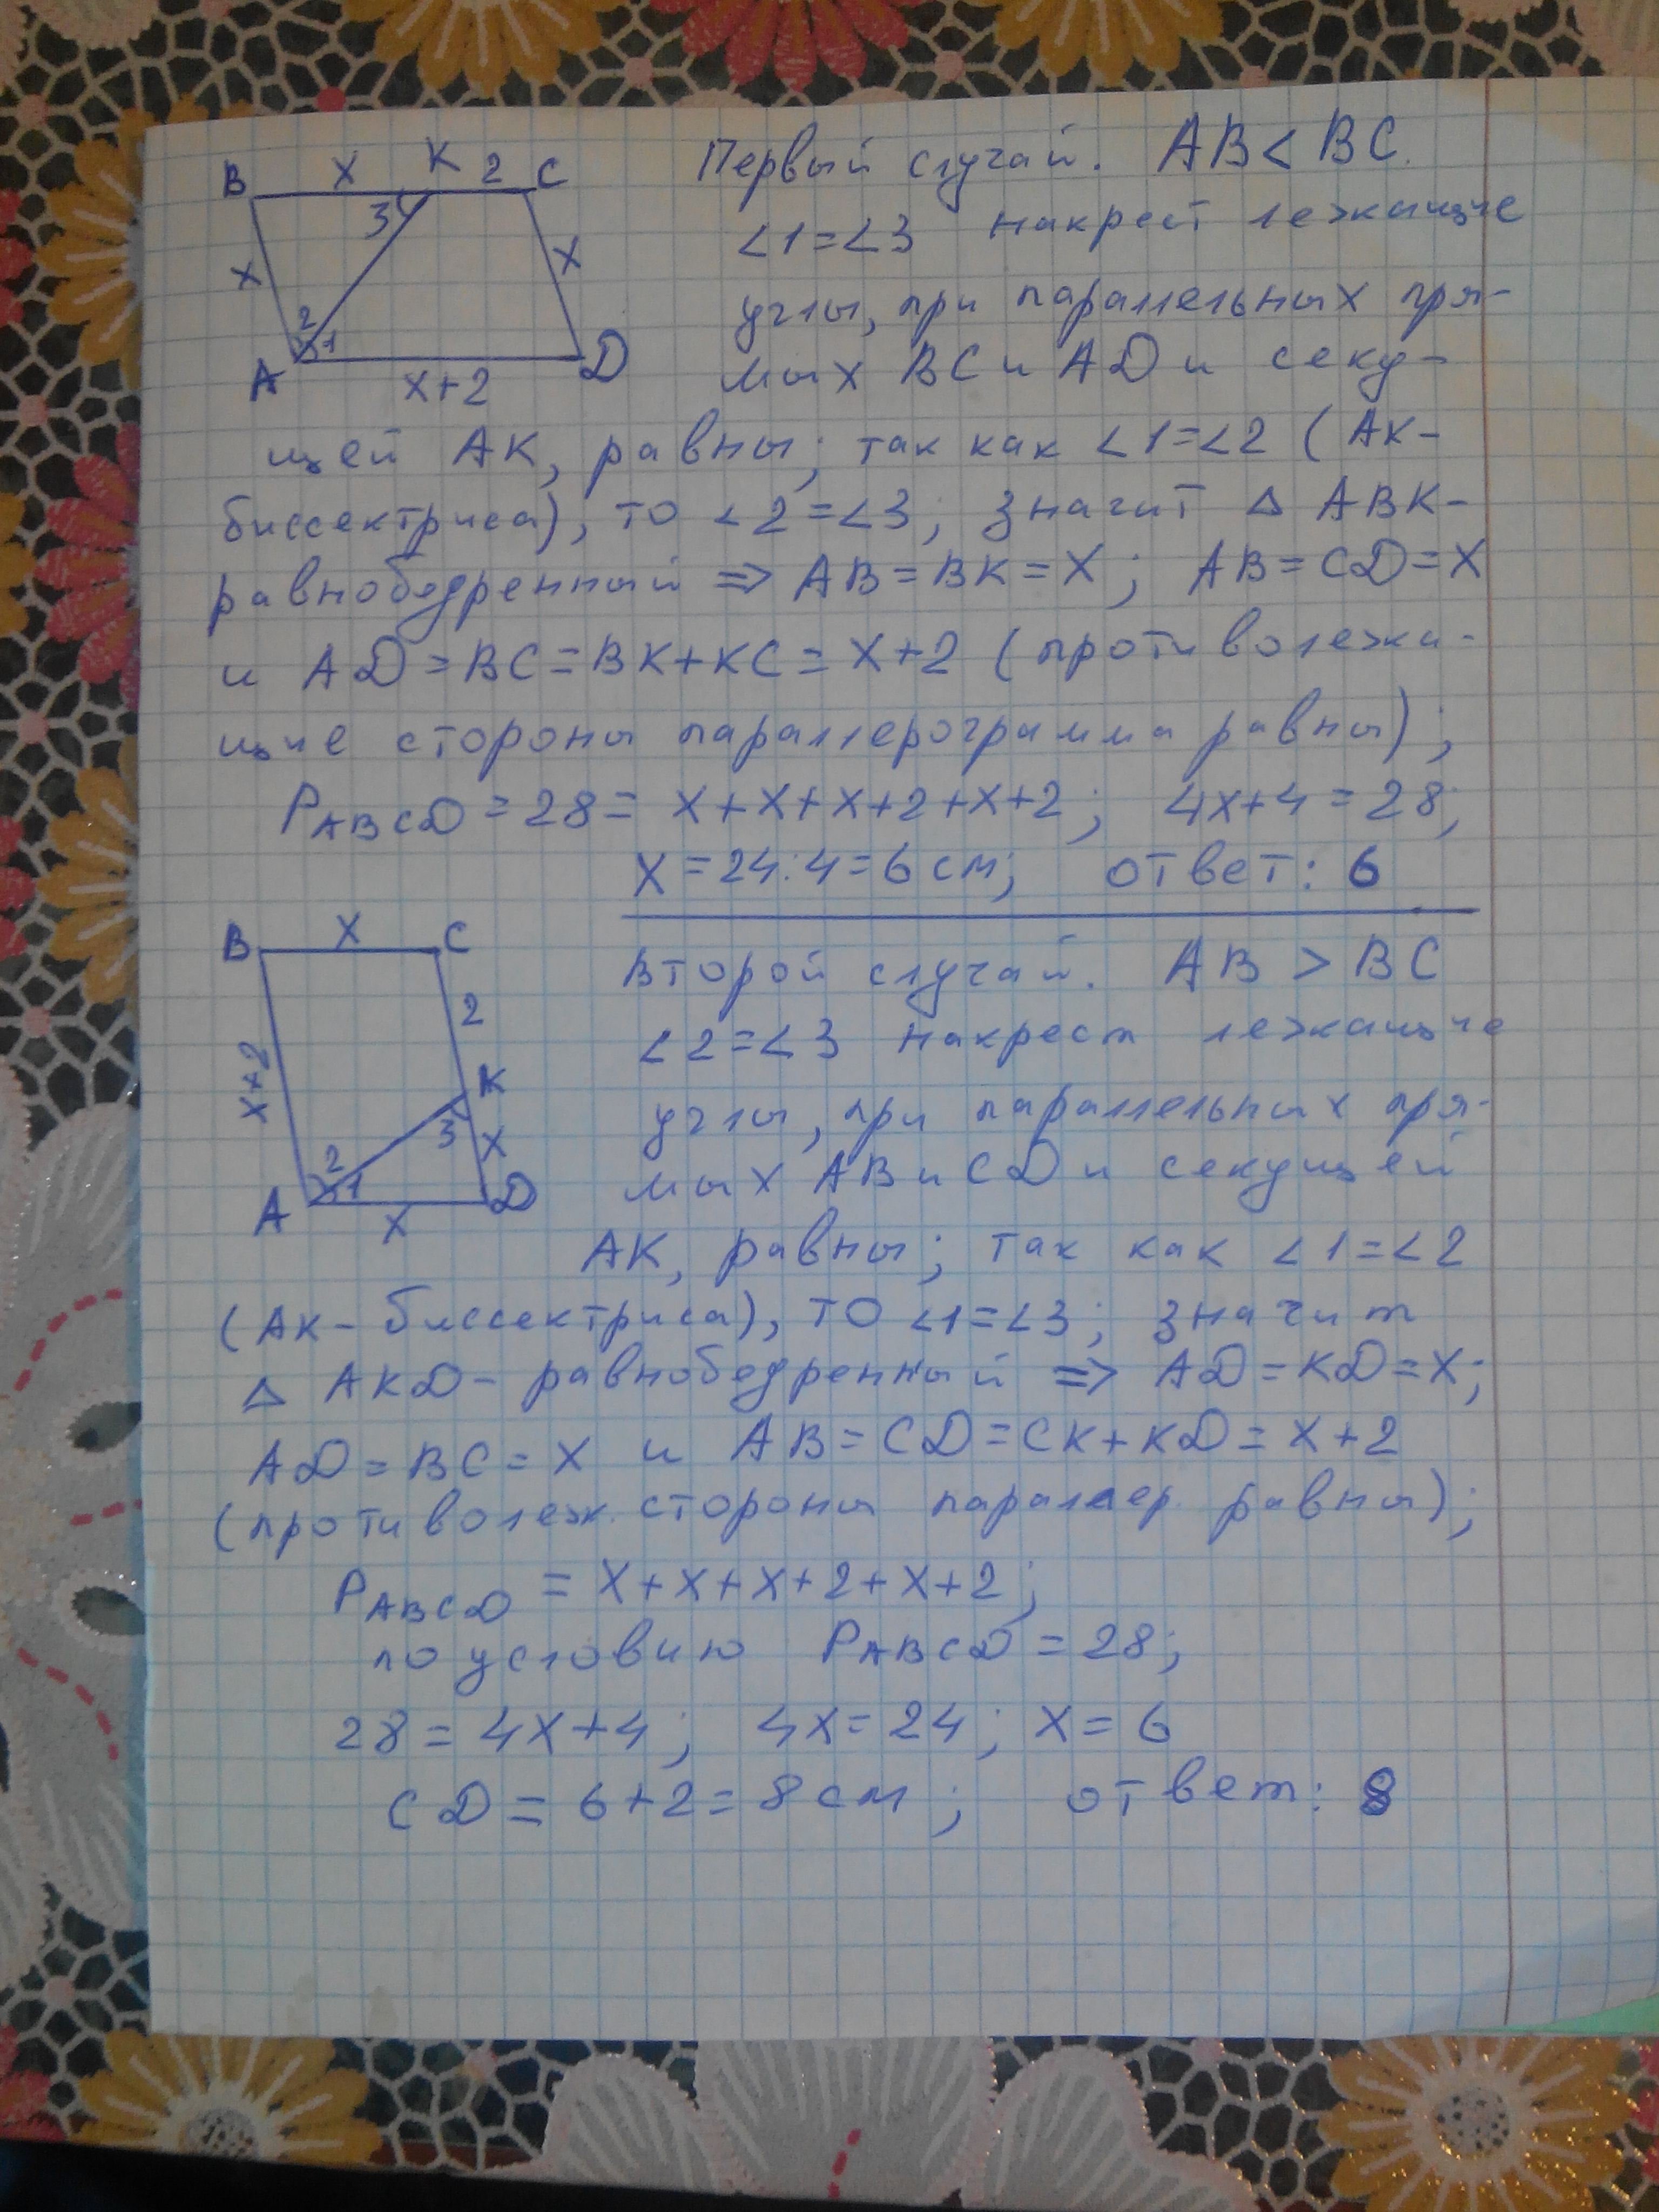 B X K 2 C
3
X X
2
1
A X+2 D
Первый случай. AB < BC.
∠1=∠3 накрест лежащие
углы, при параллельных пря-
мых BC и AD и секу-
щей AK, равны; так как ∠1=∠2 (AK-
биссектриса), то ∠2=∠3; значит △ ABK-
равнобедренный ⇒ AB=BK=X; AB=CD=X
и AD=BC=BK+KC=X+2 (противолежа-
щие стороны параллерограмма равны);
PABCD = 28 = X+X+X+2+X+2; 4X+4=28;
X=24:4=6 см; ответ: 6
B X C
2
X+2 K
3
X
2
1
A X D
Второй случай. AB > BC
∠2=∠3 накрест лежащие
углы, при параллельных пря-
мых AB и CD и секущей
AK, равны; так как ∠1=∠2
(AK-биссектриса), то ∠1=∠3; значит
△ AKD- равнобедренный ⇒ AD=KD=X;
AD=BC=X и AB=CD=CK+KD=X+2
(противолеж. стороны параллер. равны);
PABCD = X+X+X+2+X+2;
по условию PABCD=28;
28=4X+4; 4X=24; X=6
CD=6+2=8 см; ответ: 8